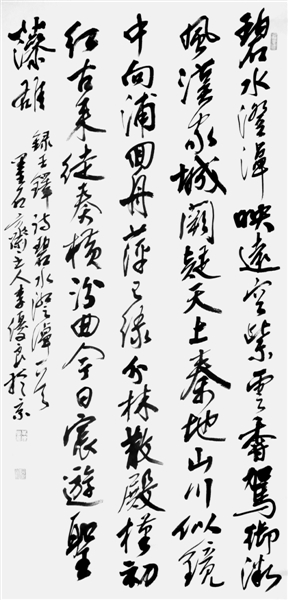 碧水澄潭映遠空紫雲香駕御微
風漢家城闕疑天上秦地山川似鏡
中向浦回舟萍已綠分林散殿槿初
紅古來徒奏橫汾曲今日宸遊聖
藻雄
錄王鐸詩碧水澄潭一首
墨石齋主人李優良於京